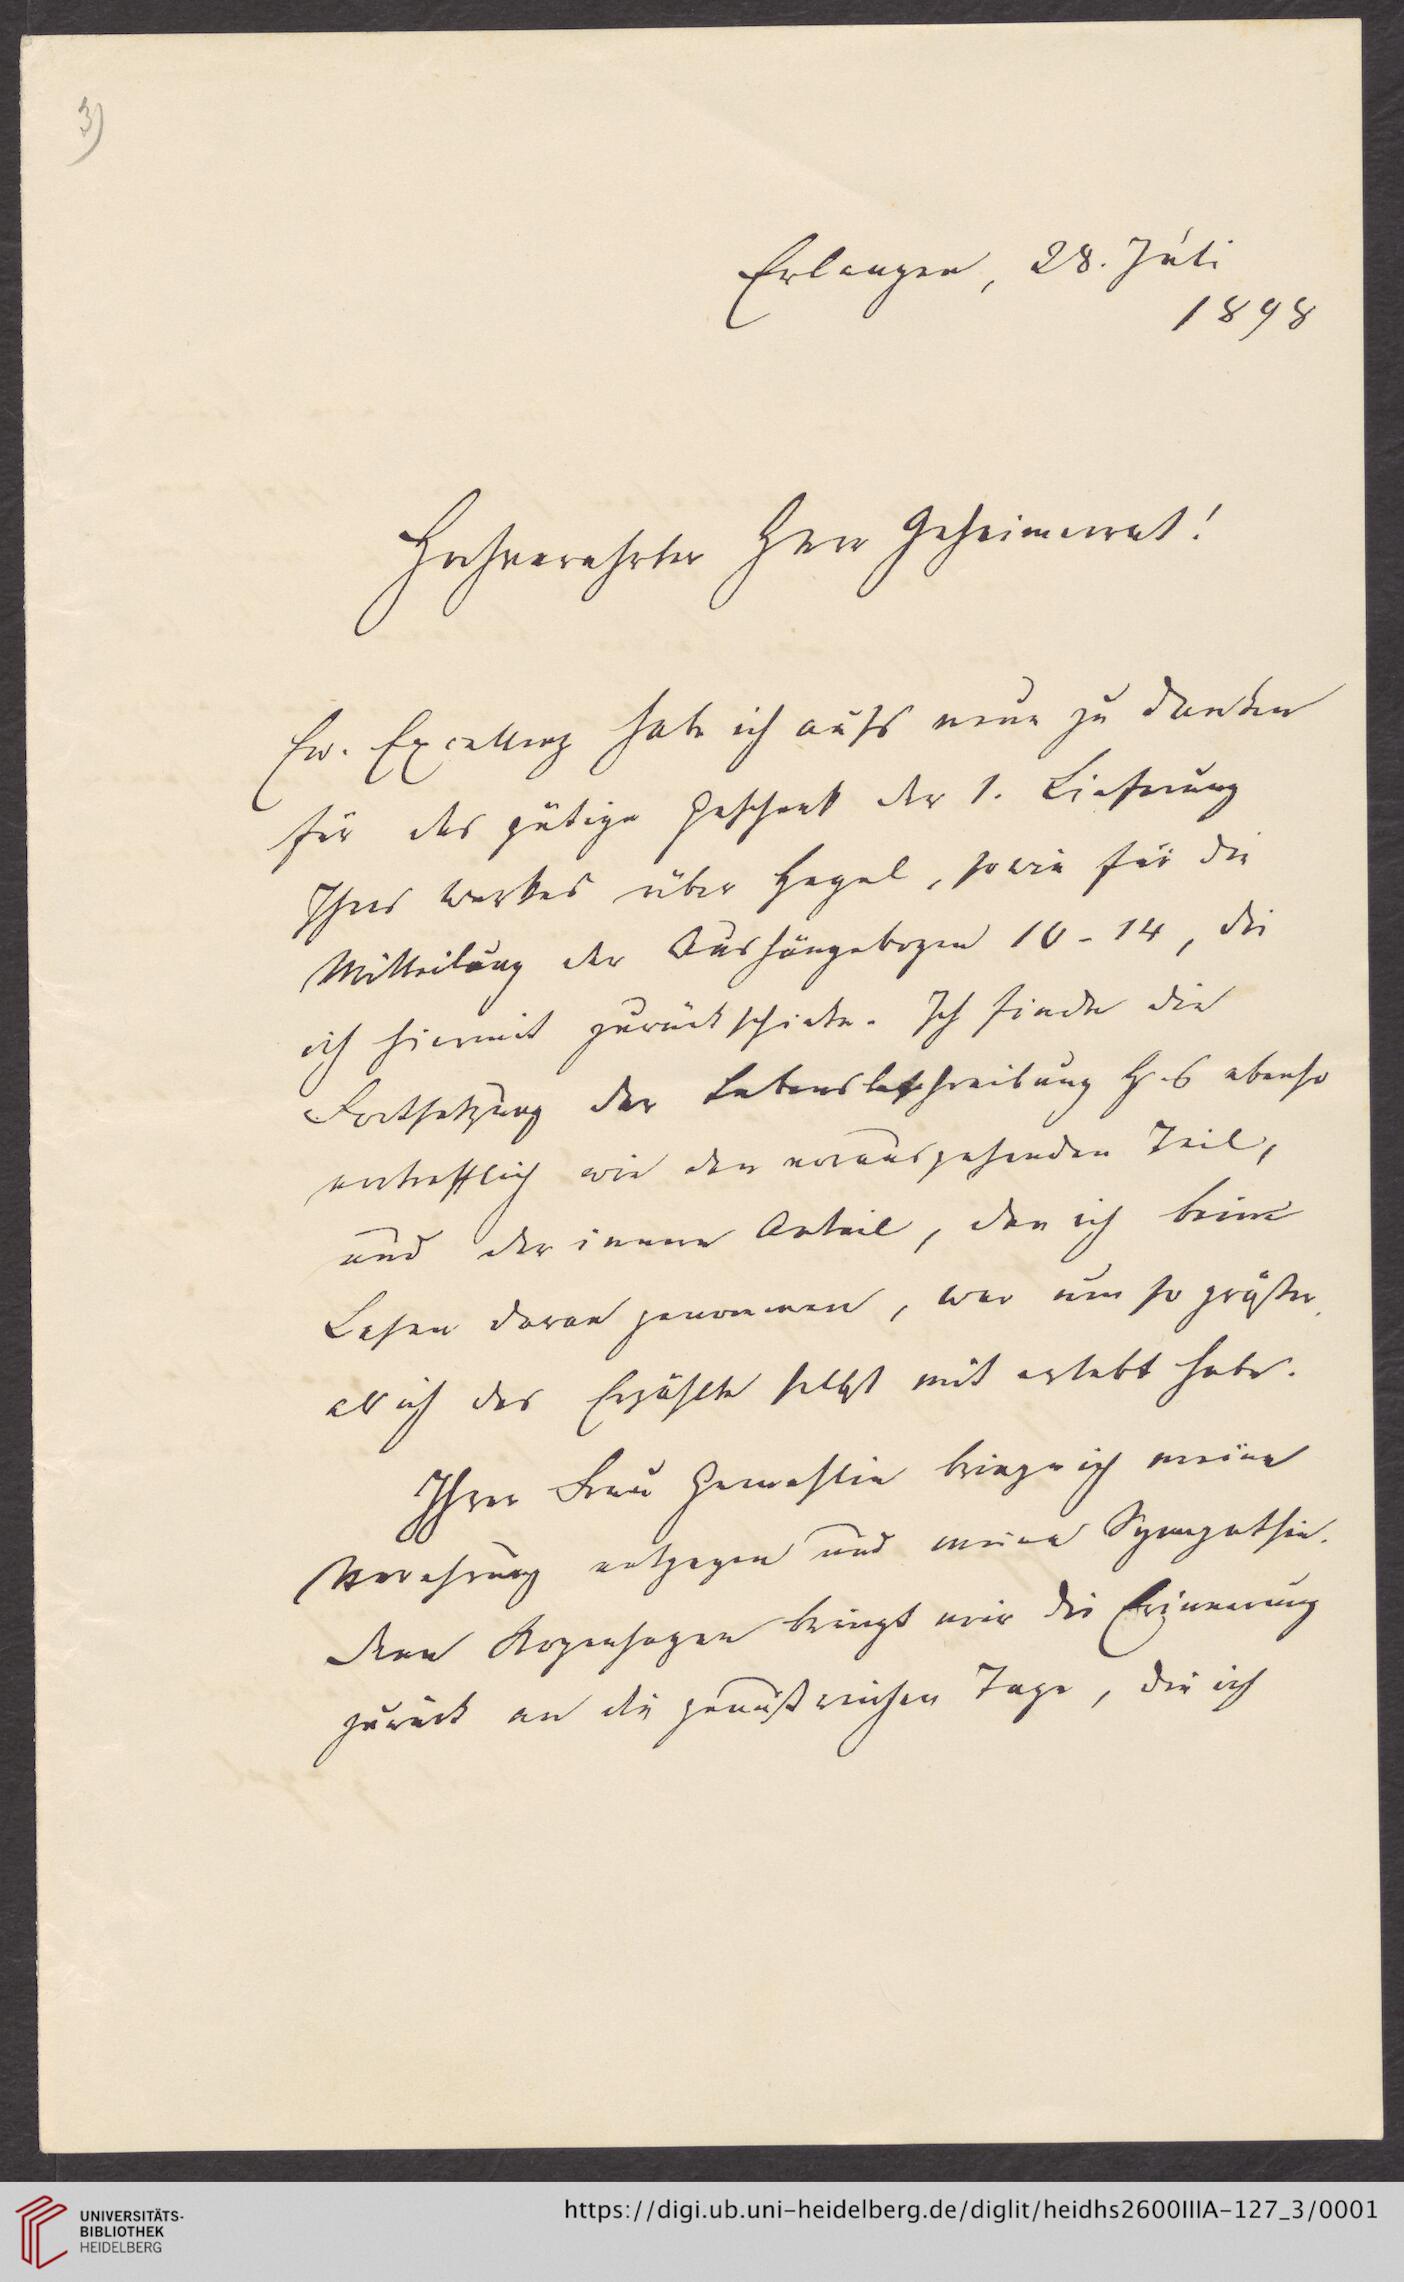 3)
Erlangen, 28. Juli
1898
Hochverehrter Herr Geheimerat!
Ew. Excellenz habe ich aufs neue zu danken
für das gütige Geschenk der 1. Lieferung
Ihres Werkes über Hegel, sowie für die
Mitteilung der Aushängebogen 10-14, die
ich hiermit zurückschicke. Ich finde die
Fortsetzung der Lebensbeschreibung H-s ebenso
vortrefflich wie den vorausgehenden Teil,
und der innere Anteil, den ich beim
Lesen daran genommen, war um so größer,
als ich das Erzählte selbst mit erlebt habe.
Ihrer Frau Gemahlin bringe ich meine
Verehrung entgegen und meine Sympathie.
Denn Kopenhagen bringt mir die Erinnerung
zurück an die genußreichen Tage, die ich
UNIVERSITÄTS-
BIBLIOTHEK
HEIDELBERG
https://digi.ub.uni-heidelberg.de/diglit/heidhs2600IIIA-127_3/0001